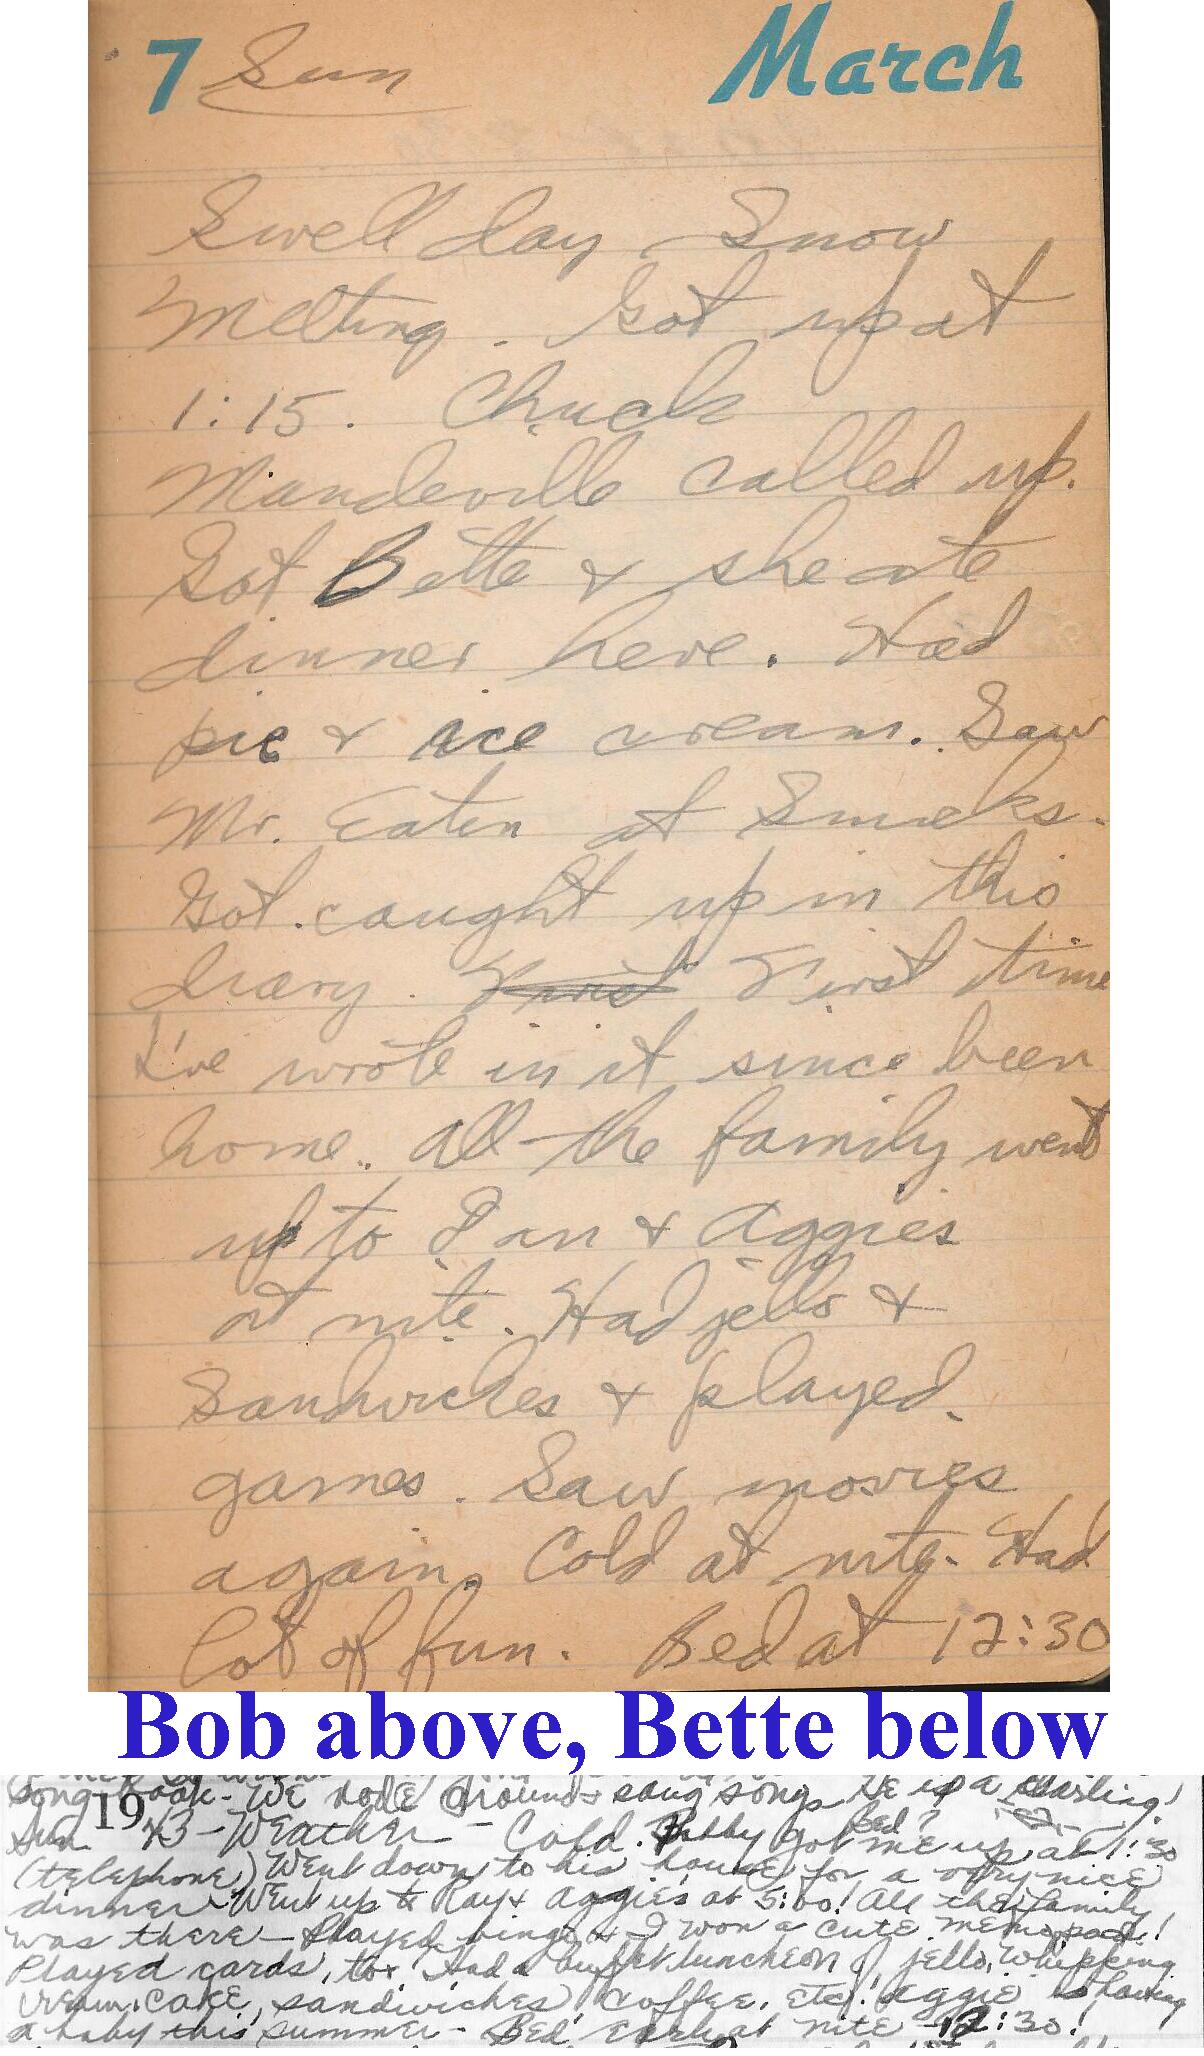 7 Sun March
Swell day Snow
melting. Got up at
1:15. Chuck
Mandeville called up.
Got Bette & she ate
dinner here. Had
pie & ice cream. Saw
Mr. Eaten at Smeks.
Got caught up in this
diary. First First time
I've wrote in it since been
home. All the family went
up to Ian & Aggies
at nite. Had jello &
Sandwiches & played
games. Saw movies
again. Cold at nite. Had
lot of fun. Bed at 12:30
Bob above, Bette below
song book - We rode around & sang songs He is a darling!
Bed?
Sun. 1943 - Weather - Cold. Bobby got me up at 1:30
(telephone) Went down to his house for a very nice
dinner Went up to Ray & Aggie's at 5:00! All the family
was there - Played bingo & I won a cute memo pad!
Played cards, too. Had a buffet luncheon of jello, whipping
cream, cake, sandwiches, coffee, etc! Aggie is having
a baby this summer - Bed early at nite - 12:30!